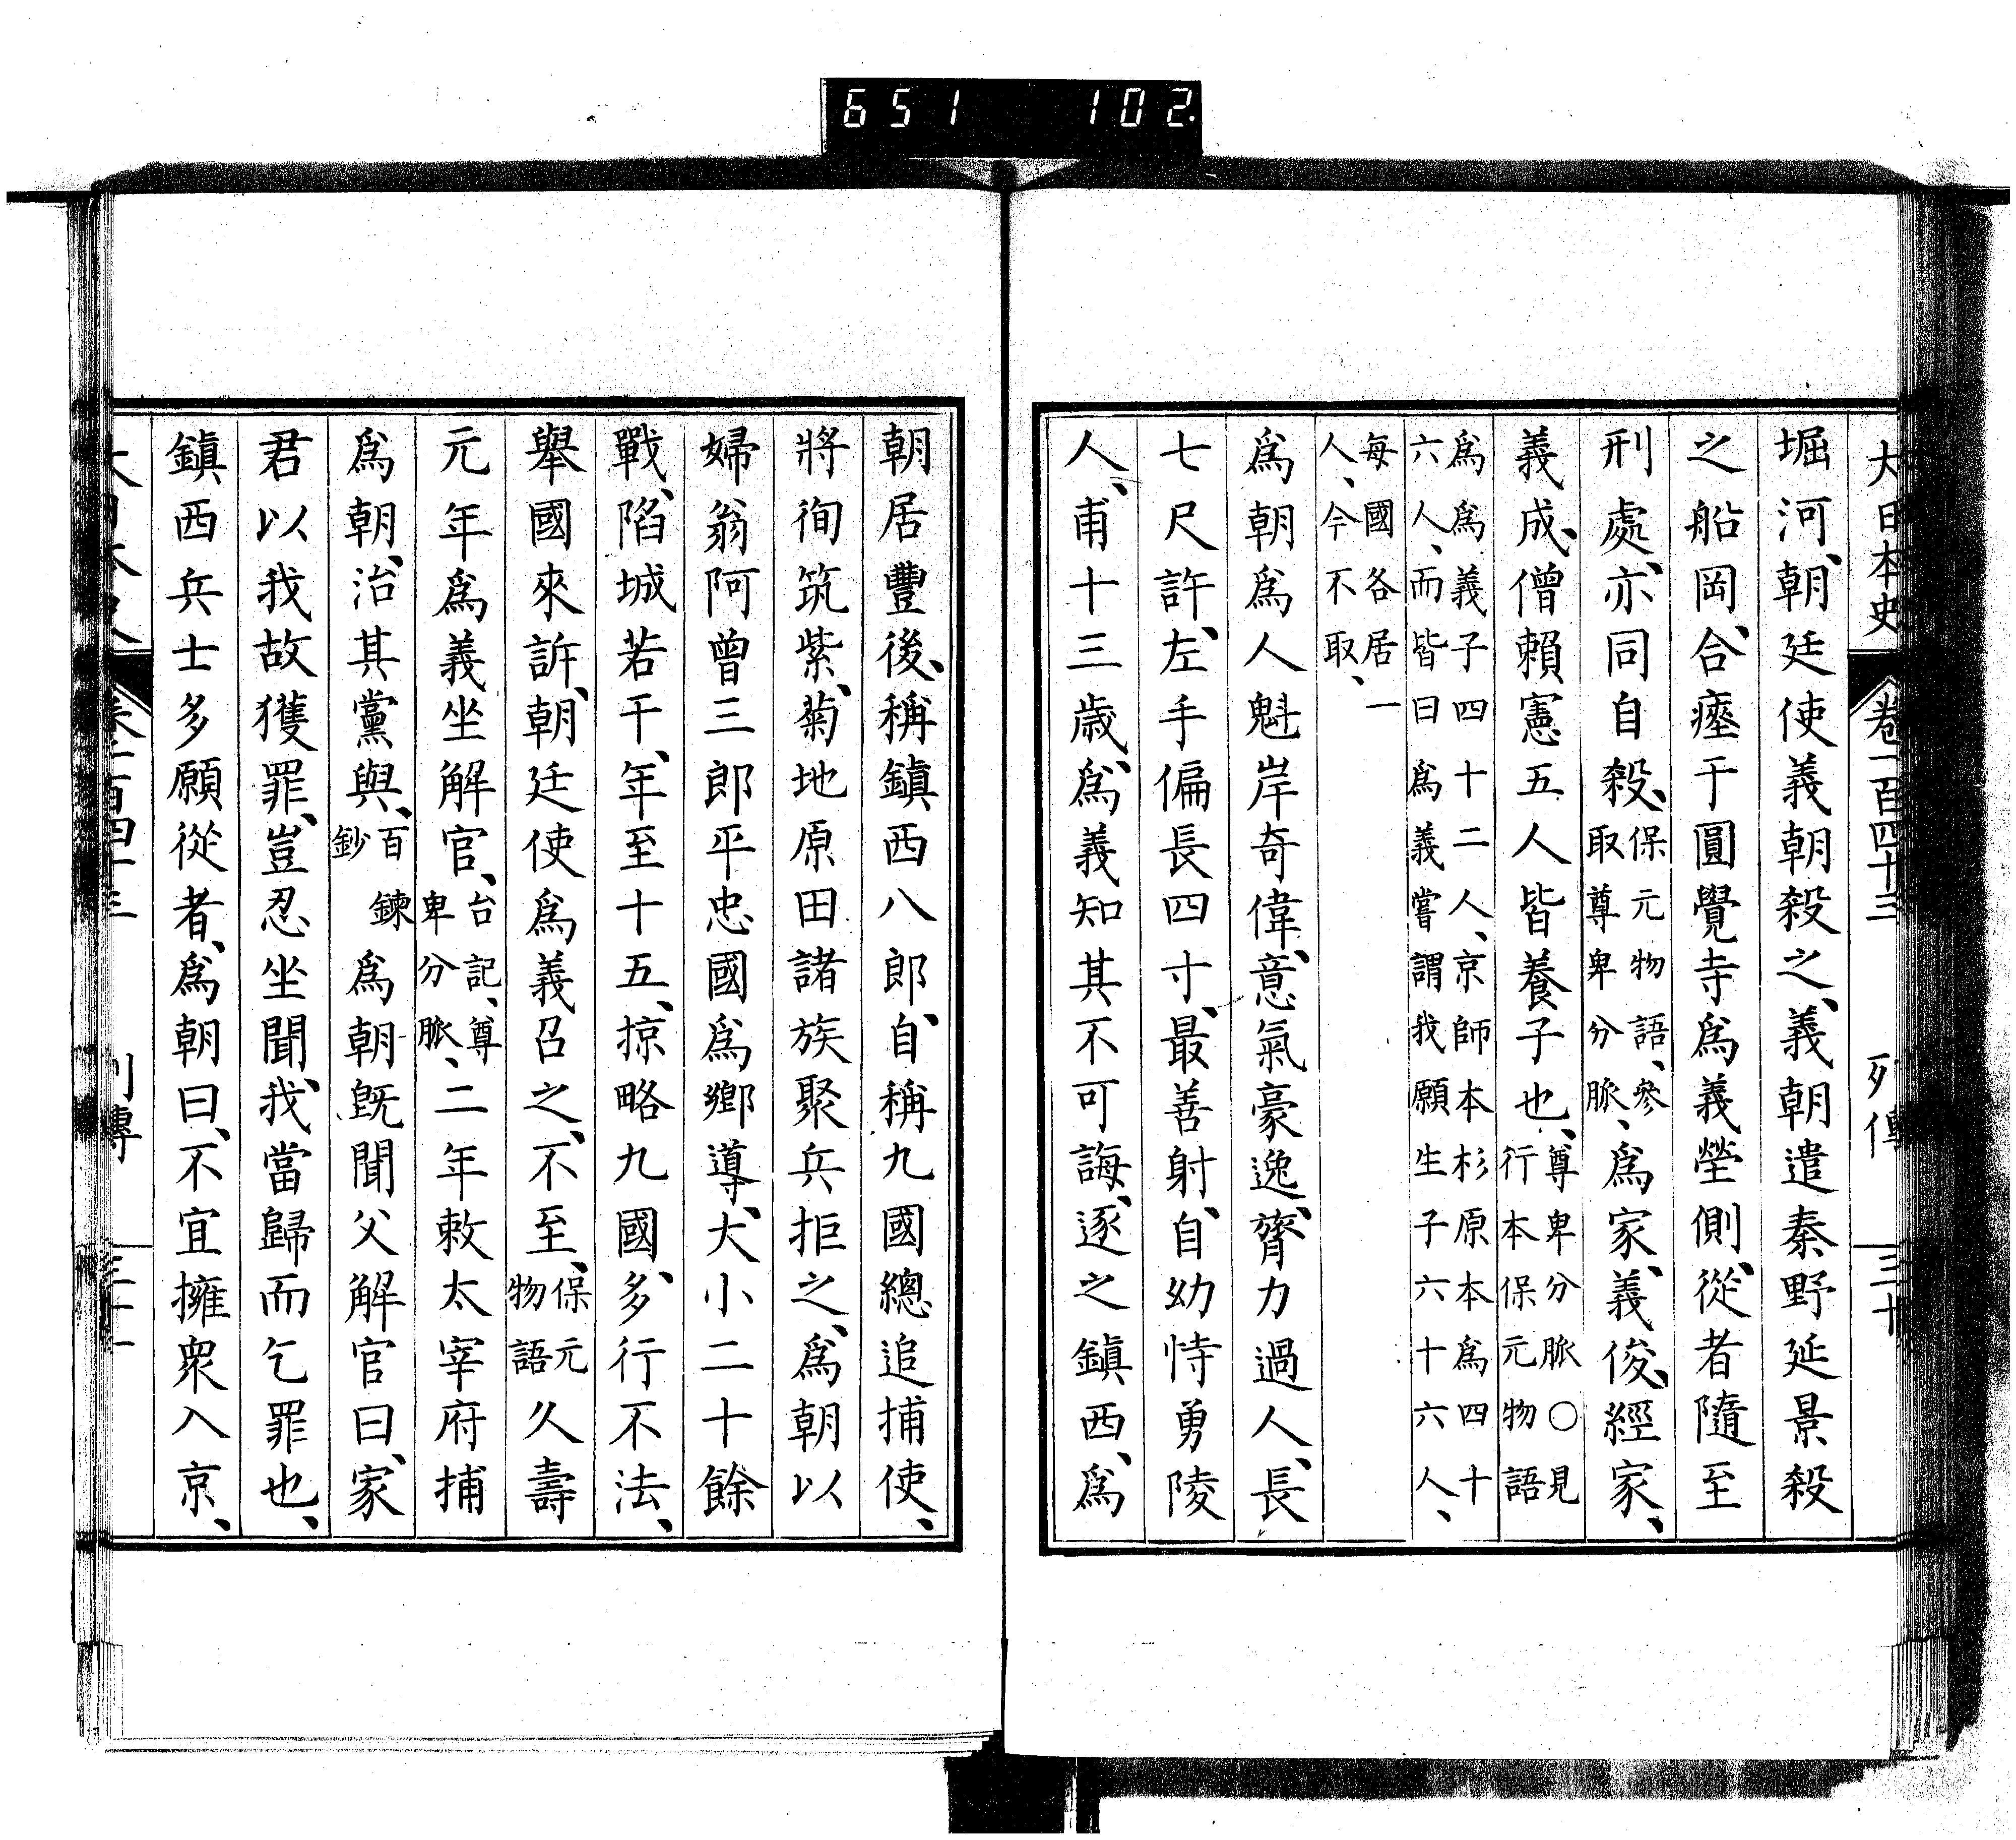 651 102.
大日本史 卷一百四十三 列傳 三十
堀河、朝廷使義朝殺之、義朝遣秦野延景殺
之船岡、合瘞于圓覺寺爲義塋側、從者隨至
刑處、亦同自殺、保元物語、參取尊卑分脈、爲家、義俊、經家、
義成、僧賴憲五人皆養子也、尊卑分脈○見行本保元物語
爲爲義子四十二人、京師本杉原本爲四十
六人、而皆曰爲義嘗謂我願生子六十六人、
每國各居一
人、今不取、
爲朝爲人魁岸奇偉、意氣豪逸、膂力過人、長
七尺許、左手偏長四寸、最善射、自幼恃勇陵
人、甫十三歲、爲義知其不可誨、逐之鎮西、爲
朝居豐後、稱鎮西八郎、自稱九國總追捕使、
將徇筑紫、菊地原田諸族聚兵拒之、爲朝以
婦翁阿曾三郎平忠國爲鄉導、大小二十餘
戰、陷城若干、年至十五、掠略九國、多行不法、
舉國來訴、朝廷使爲義召之、不至、保元物語久壽
元年爲義坐解官、台記、尊卑分脈、二年敕太宰府捕
爲朝、治其黨與、百鍊鈔爲朝既聞父解官曰、家
君以我故獲罪、豈忍坐聞、我當歸而乞罪也、
鎮西兵士多願從者、爲朝曰、不宜擁眾入京、